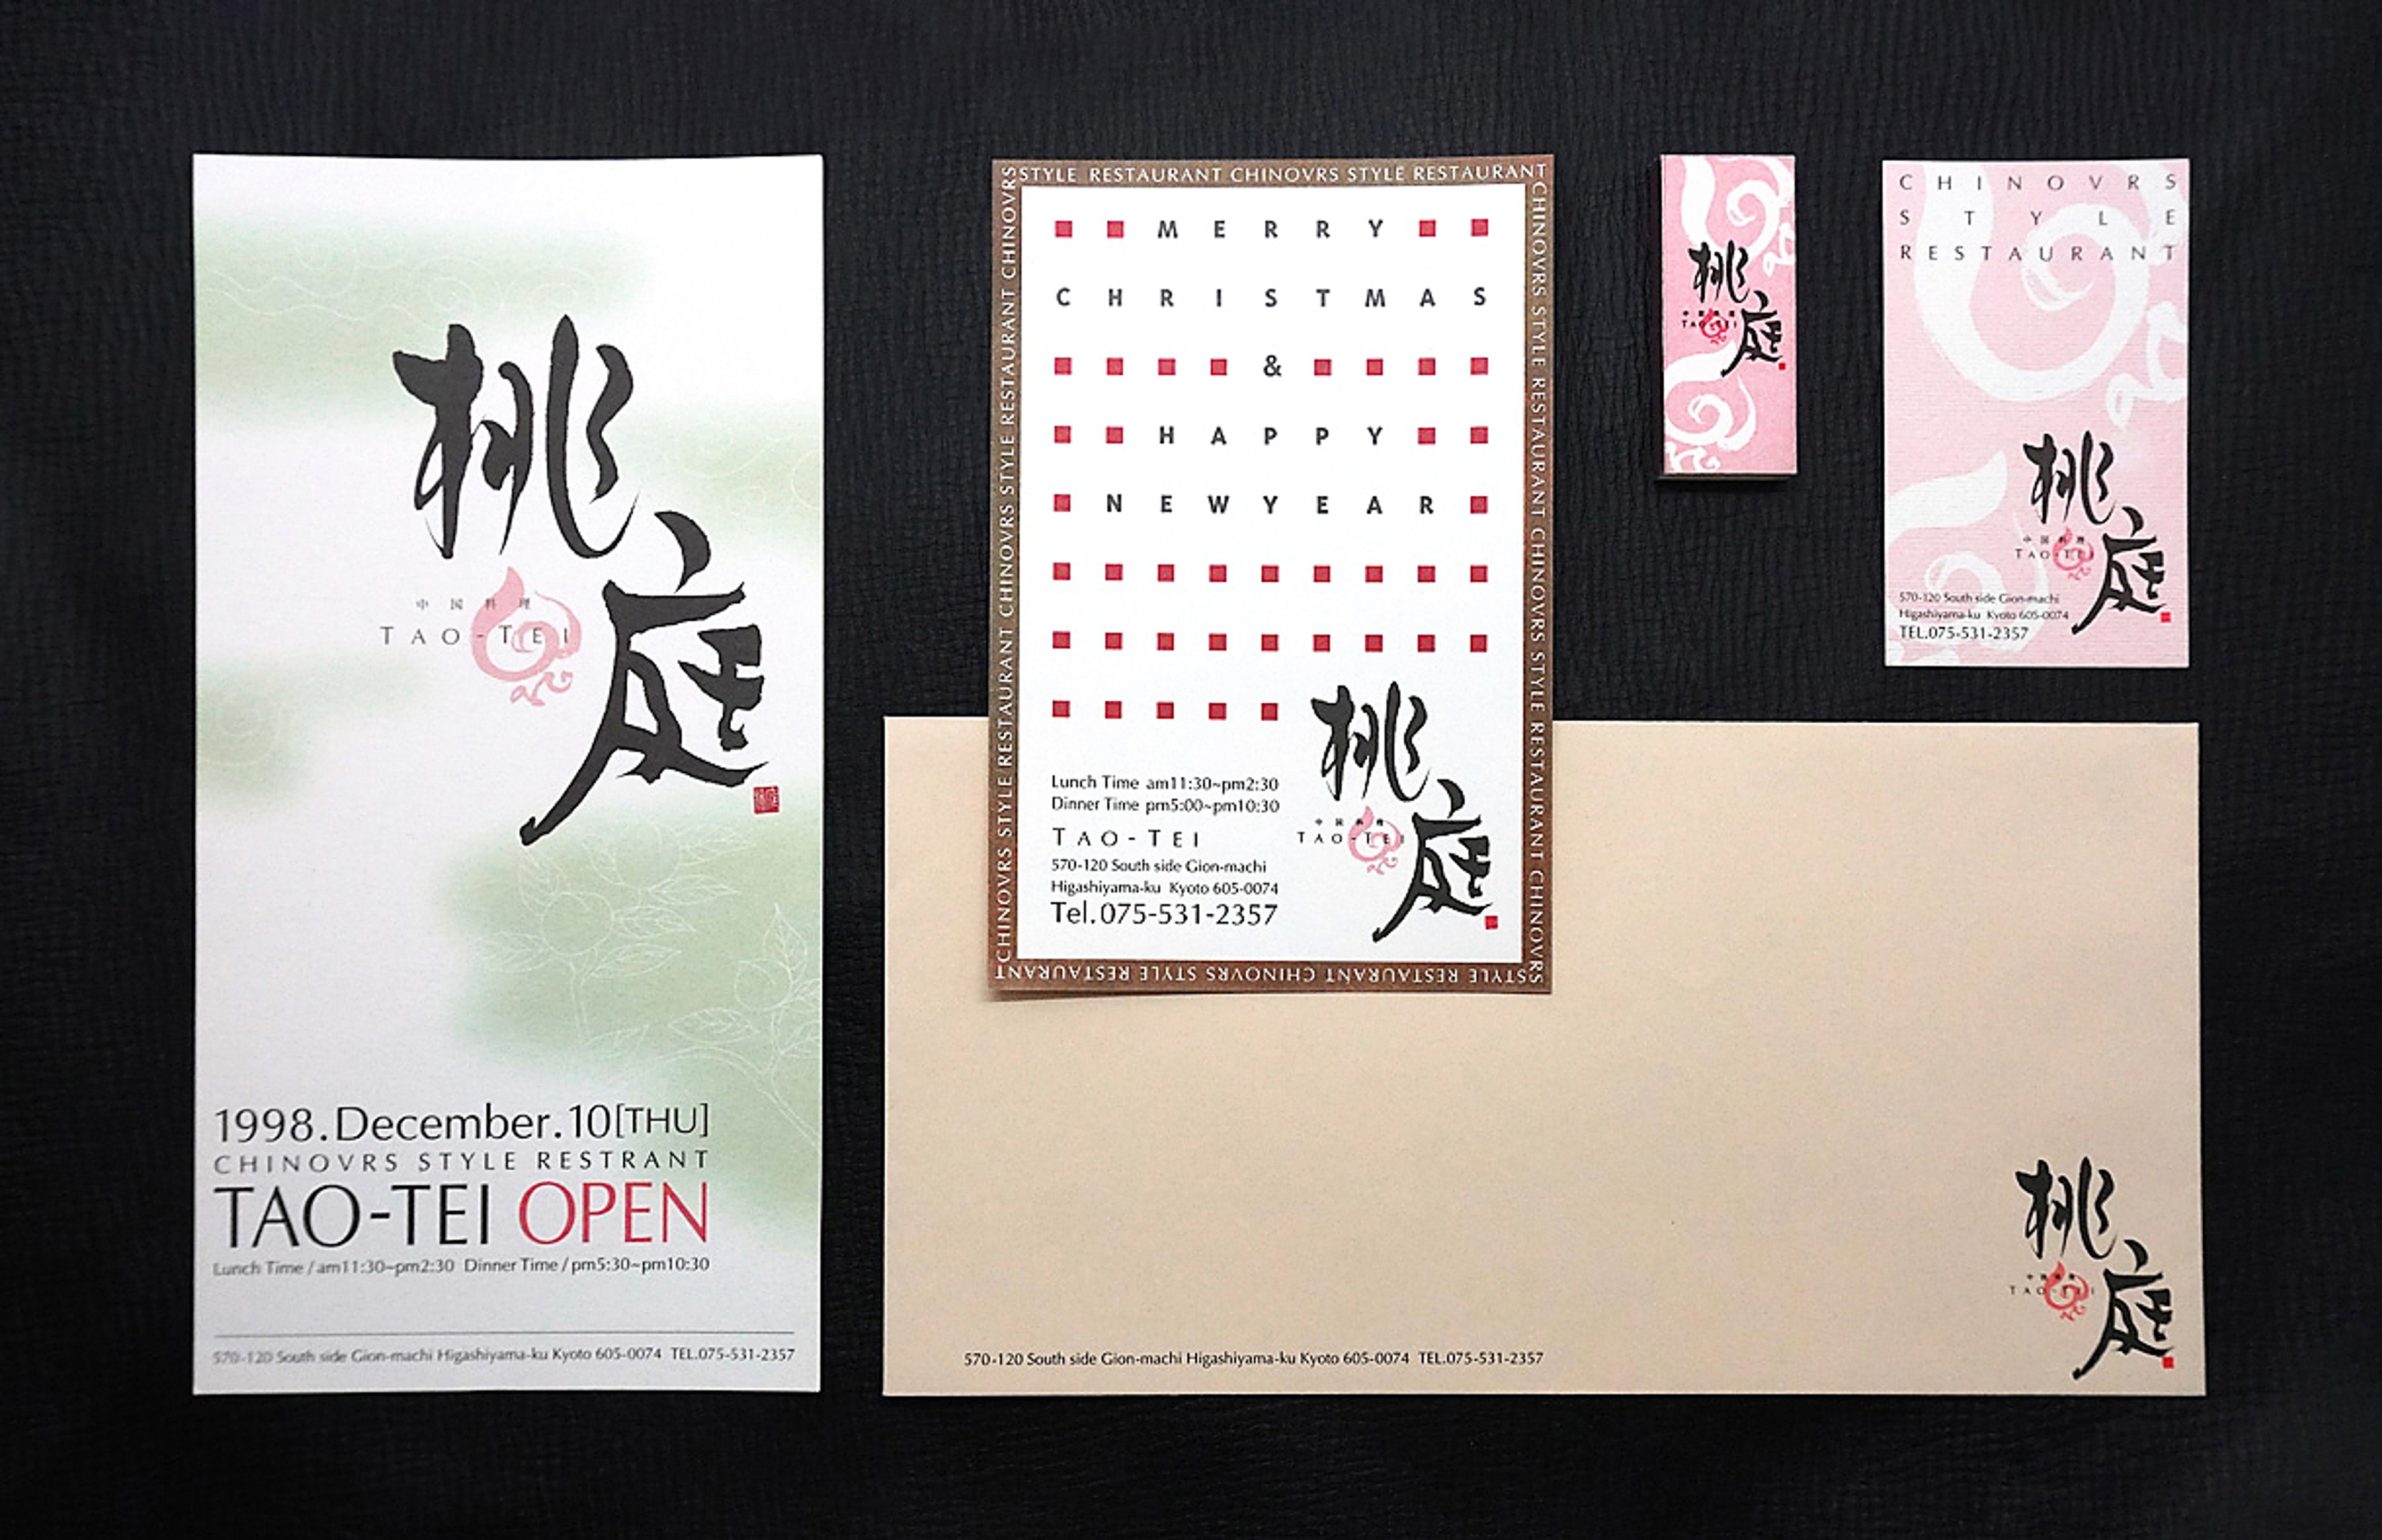 桃庭
中国料理
TAO-TEI
1998.December.10[THU]
CHINOVRS STYLE RESTRANT
TAO-TEI OPEN
Lunch Time / am11:30~pm2:30 Dinner Time / pm5:30~pm10:30
570-120 South side Gion-machi Higashiyama-ku Kyoto 605-0074 TEL.075-531-2357
STYLE RESTAURANT CHINOVRS STYLE RESTAURANT
CHINOVRS STYLE RESTAURANT CHINOVRS STYLE RESTAURANT CHINOVRS STYLE RESTAURANT CHINOVRS
STYLE RESTAURANT CHINOVRS STYLE RESTAURANT
CHINOVRS STYLE RESTAURANT CHINOVRS STYLE RESTAURANT CHINOVRS STYLE RESTAURANT CHINOVRS
MERRY
CHRISTMAS
&
HAPPY
NEWYEAR
Lunch Time am11:30~pm2:30
Dinner Time pm5:00~pm10:30
TAO-TEI
570-120 South side Gion-machi
Higashiyama-ku Kyoto 605-0074
Tel.075-531-2357
桃庭
中国料理
TAO-TEI
桃庭
中国料理
TAO-TEI
CHINOVRS
STYLE
RESTAURANT
桃庭
中国料理
TAO-TEI
570-120 South side Gion-machi
Higashiyama-ku Kyoto 605-0074
TEL.075-531-2357
桃庭
中国料理
TAO-TEI
570-120 South side Gion-machi Higashiyama-ku Kyoto 605-0074 TEL.075-531-2357